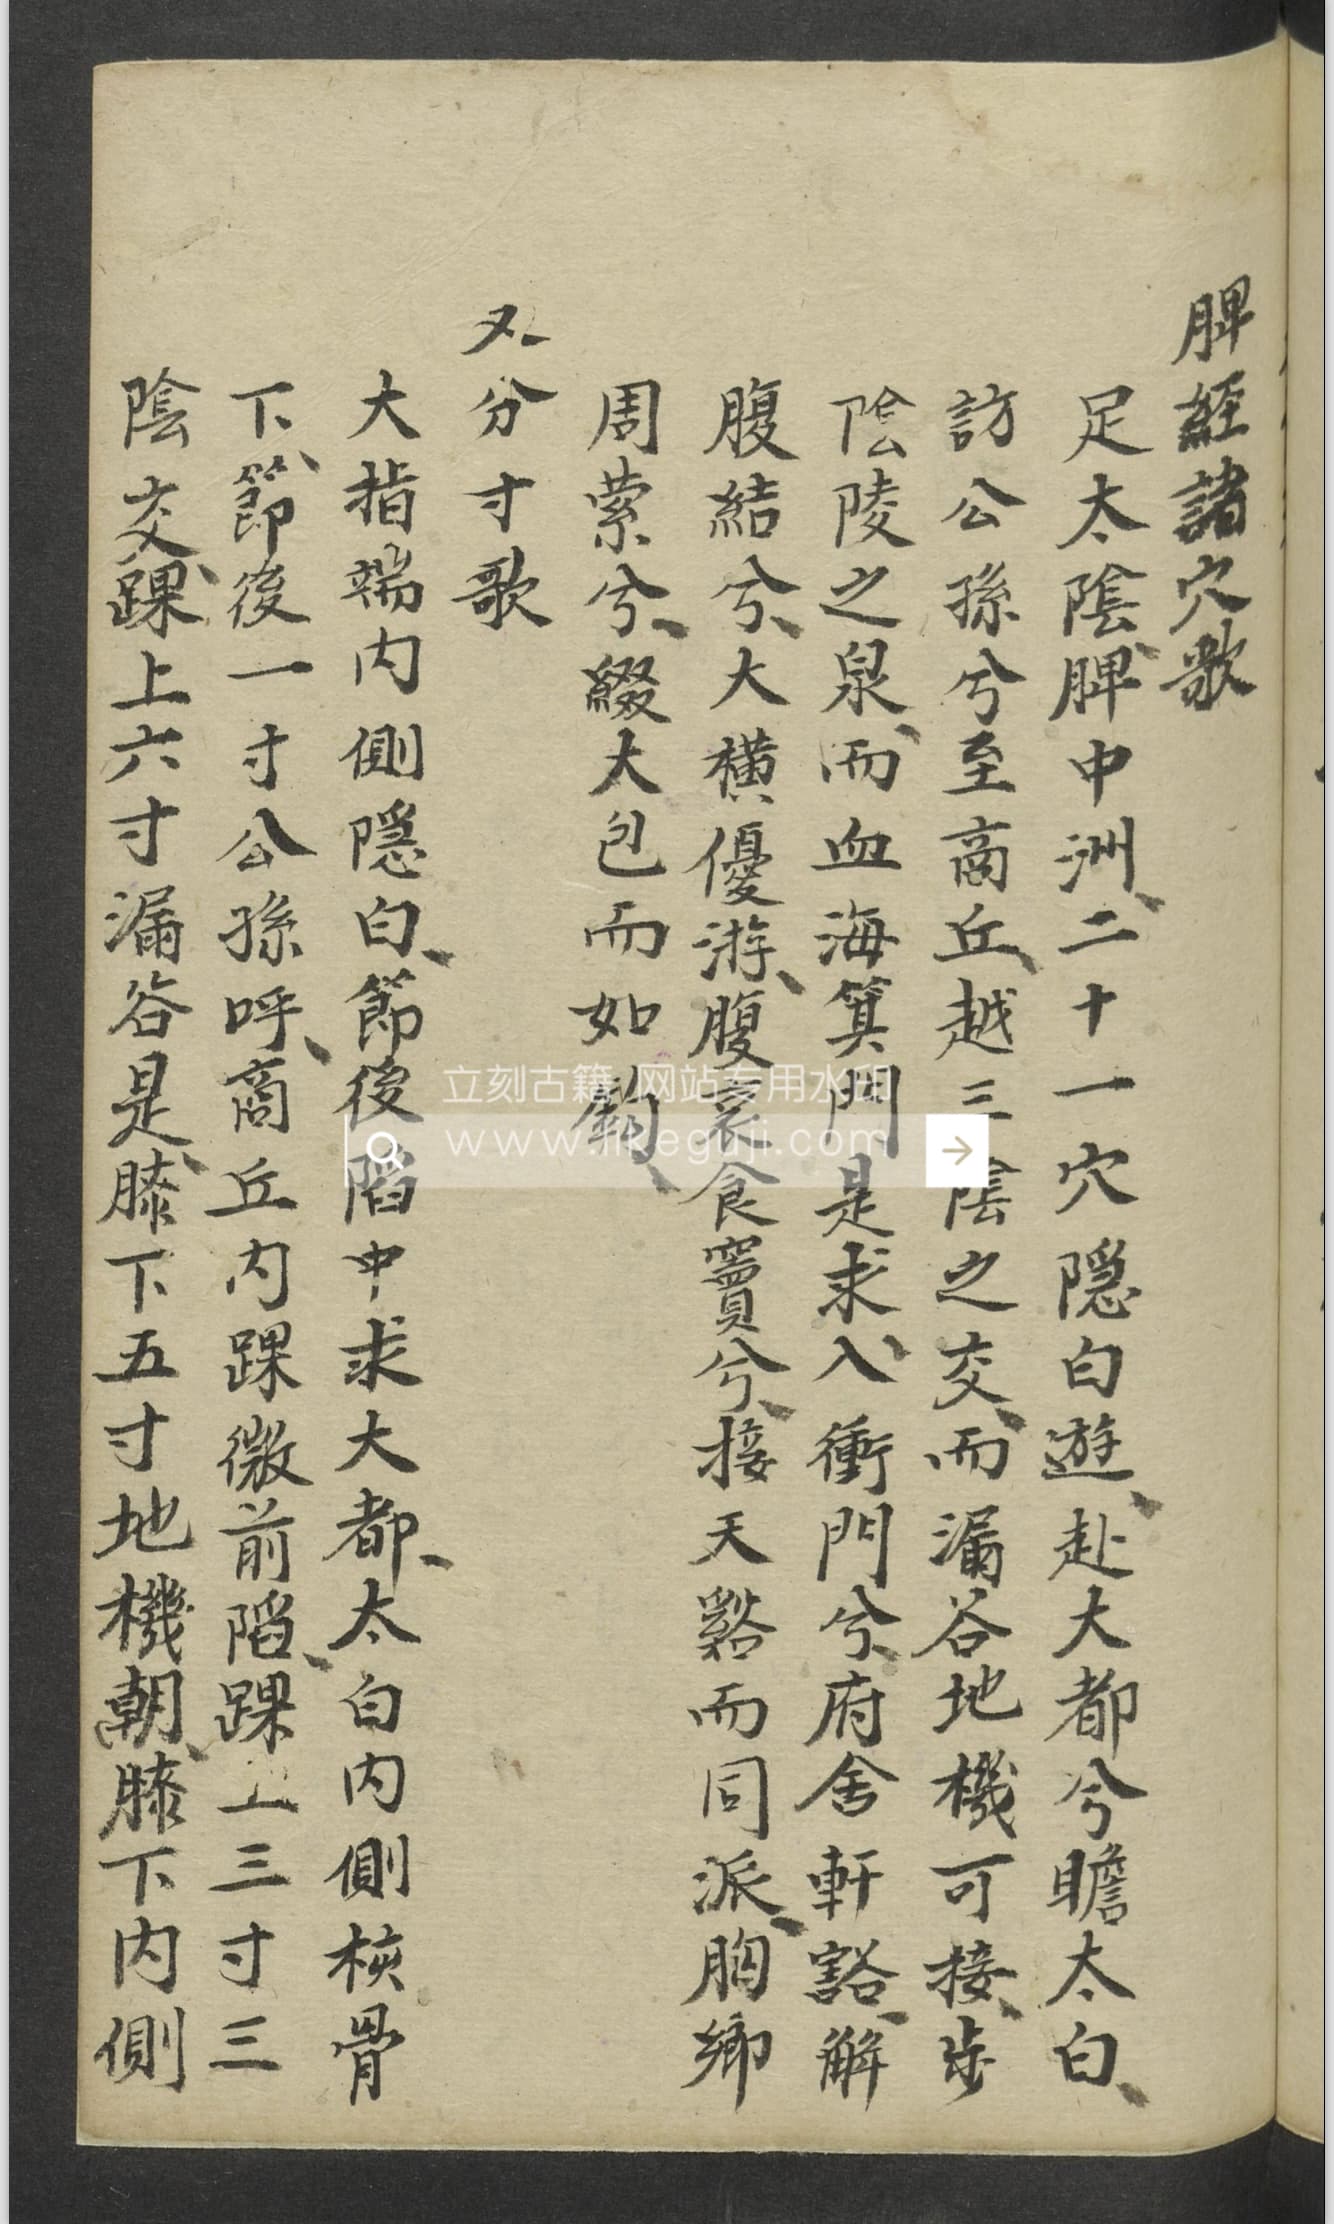 脾經諸穴歌
足太陰脾中洲二十一穴隱白遊赴大都兮瞻太白
訪公孫兮至商丘越三陰之交而漏谷地機可接步
陰陵之泉而血海箕門是求入衝門兮府舍軒豁解
腹結兮大橫優游腹哀食竇兮接天谿而同派胸鄉
周榮兮綴大包而如鉤
又分寸歌
大指端內側隱白節後陷中求大都太白內側核骨
下節後一寸公孫呼商丘內踝微前陷踝上三寸三
陰交踝上六寸漏谷是膝下五寸地機朝膝下內側
立刻古籍 网站专用水印
www.likeguji.com